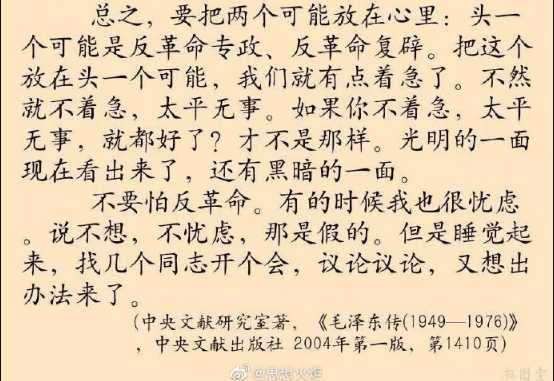 总之，要把两个可能放在心里：头一
个可能是反革命专政、反革命复辟。把这个
放在头一个可能，我们就有点着急了。不然
就不着急，太平无事。如果你不着急，太平
无事，就都好了？才不是那样。光明的一面
现在看出来了，还有黑暗的一面。
不要怕反革命。有的时候我也很忧虑
。说不想，不忧虑，那是假的。但是睡觉起
来，找几个同志开个会，议论议论，又想出
办法来了。
(中央文献研究室著，《毛泽东传(1949—1976)》
，中央文献出版社 2004年第一版，第1410页)
@思想火炬